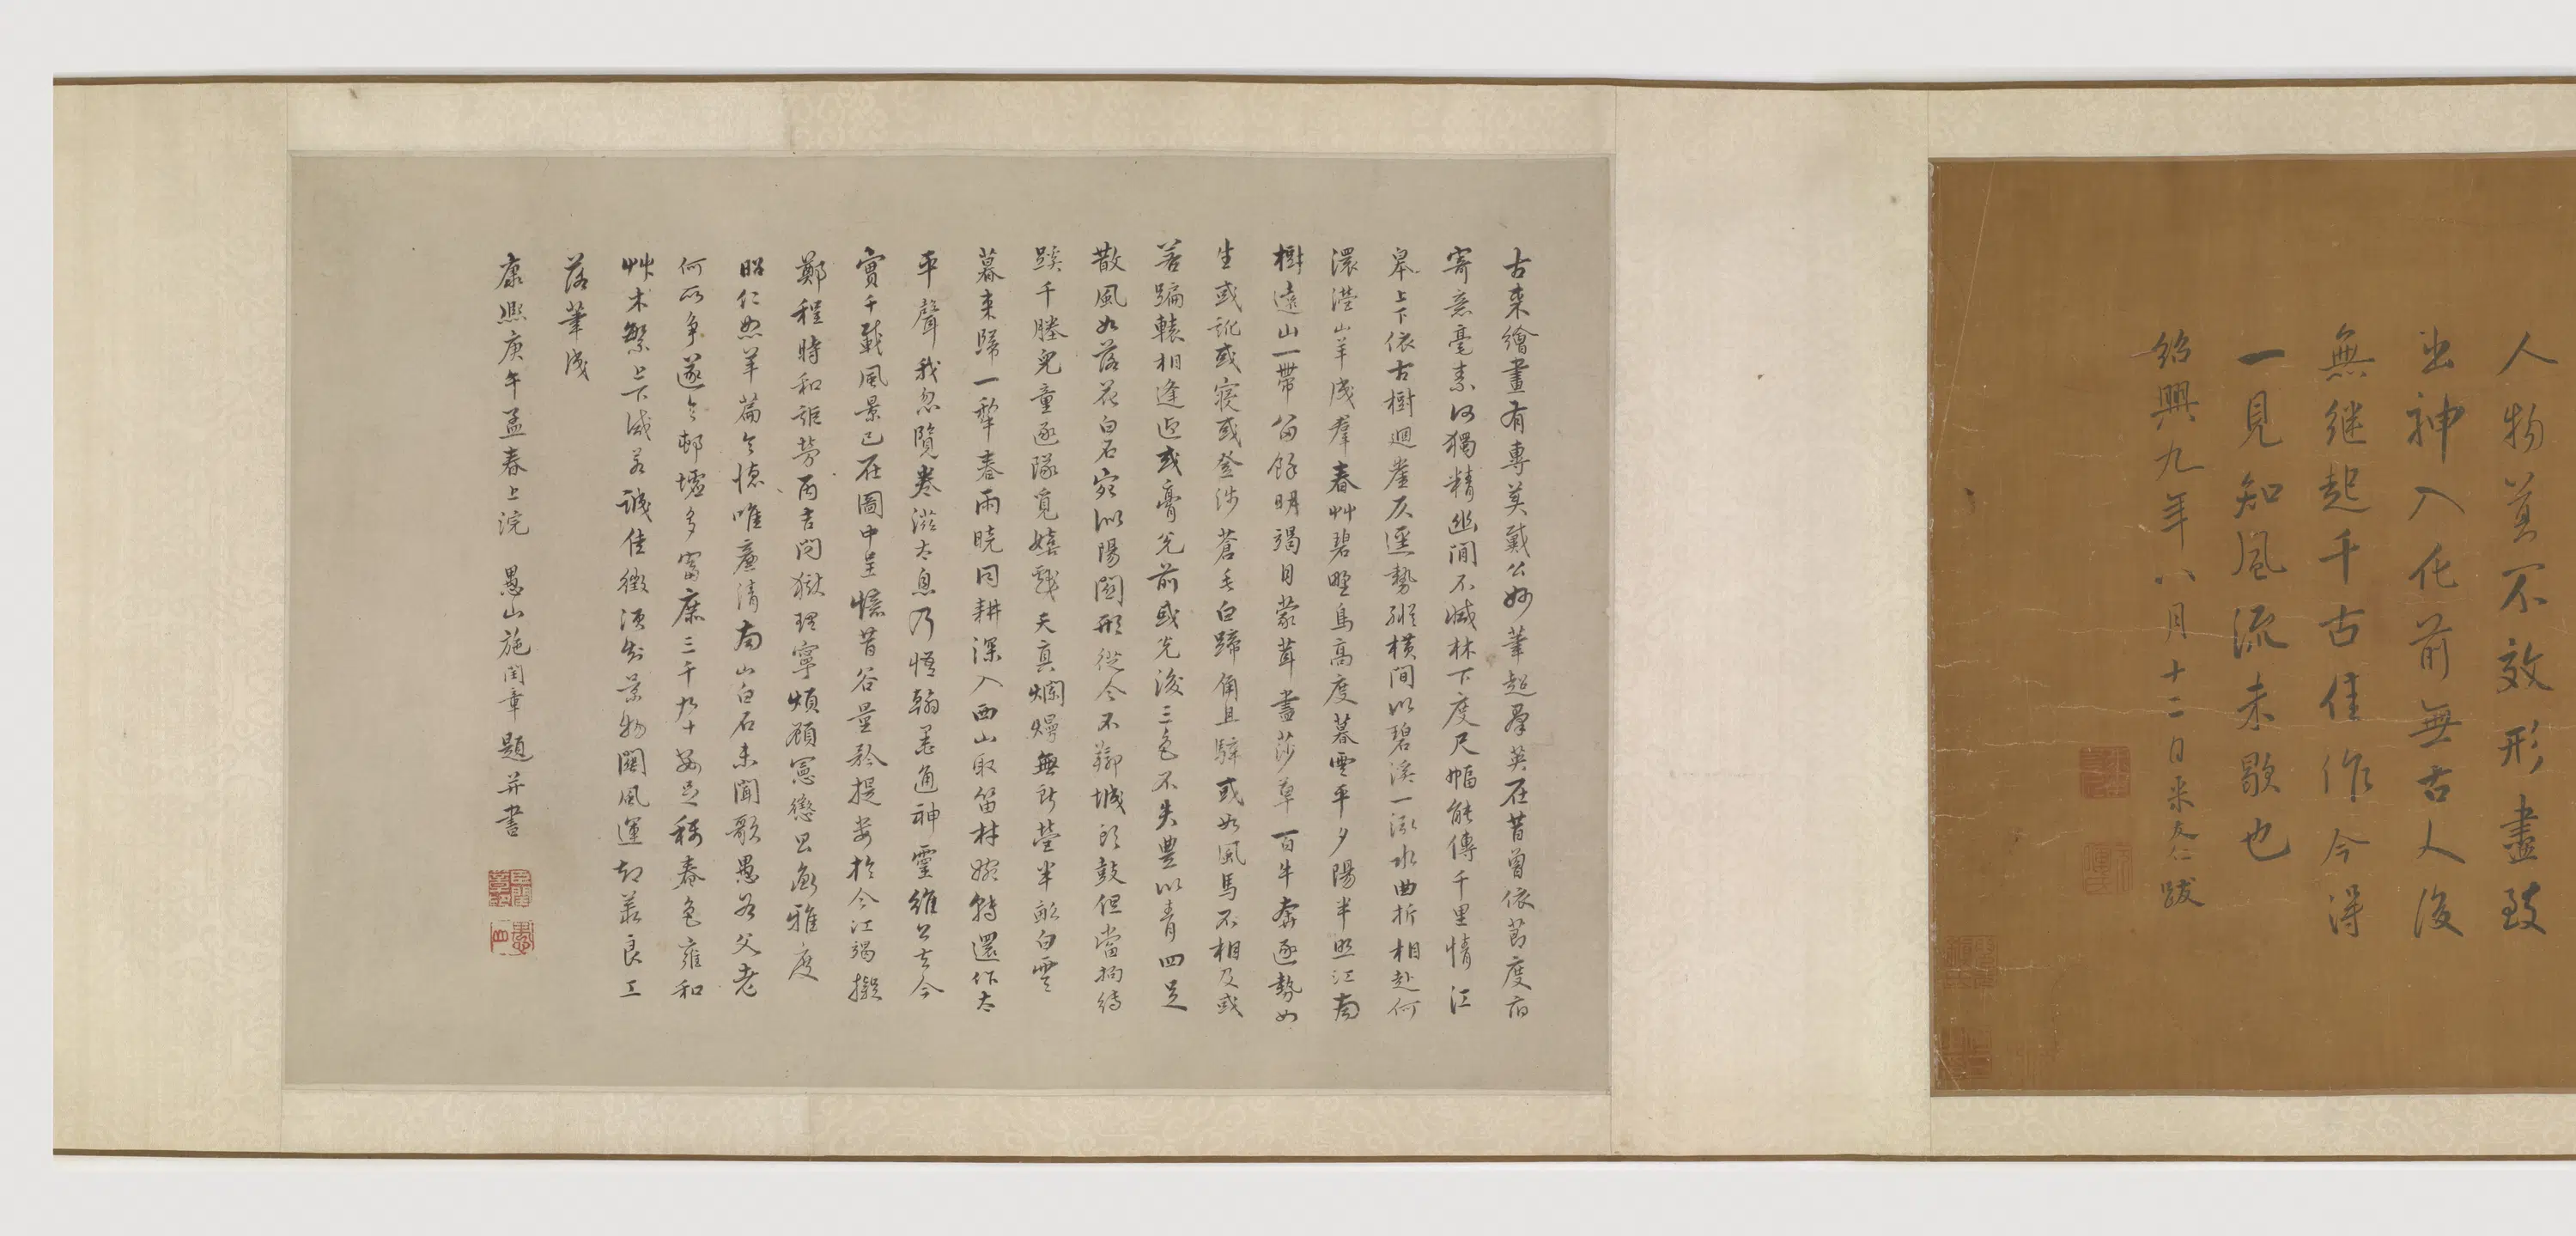 人物莫不效形盡致
出神入化前無古人後
無继起千古佳作今得
一見知風流未歇也
紹興九年八月十二日米友仁跋
古来繪畫有專英戴公妙筆超羣英在昔曾依節度府
寄意毫素何獨精幽閒不減林下度尺幅能傳千里情江
皋上下依古樹迴崖仄逕勢縱橫間以碧溪一泓水曲折相赴何
濴山羊成羣春艸碧野鳥高度暮雲平夕陽半照江南
樹遠山一帶留餘明竭目蒙茸盡莎草百牛奔逐勢如
生或訛或寝或登涉蒼毛白蹄角且騂或如風馬不相及或
若轅相逢迎或前或先後三色不失豊以青四足
散風如落花白石宛似陽關形從今不城頭鼓但當
千塍兒童逐隊覓嬉戲天真爛熳無所營半畝白雲
暮来歸一犂春雨曉同耕深入西山取笛材婉轉還作太
平聲我忽覽卷滋太息乃悟翰墨通神靈維公去今
實千載風景已在圖中呈憶昔谷量於今江竭擬
鄭程時和詎勞丙吉問獄理寧煩顧憲懲公雅度
昭仁恕羊篇今德唯廉清南山白石未聞歌愚公父老
何所争遂令邨墟多富庶三千九十安足稱春色雍和
艸木繁上下咸若誠佳徵須知景物關風運却羡良工
落筆成
康熙庚午孟春上浣 愚山施閏章題并書
愚山